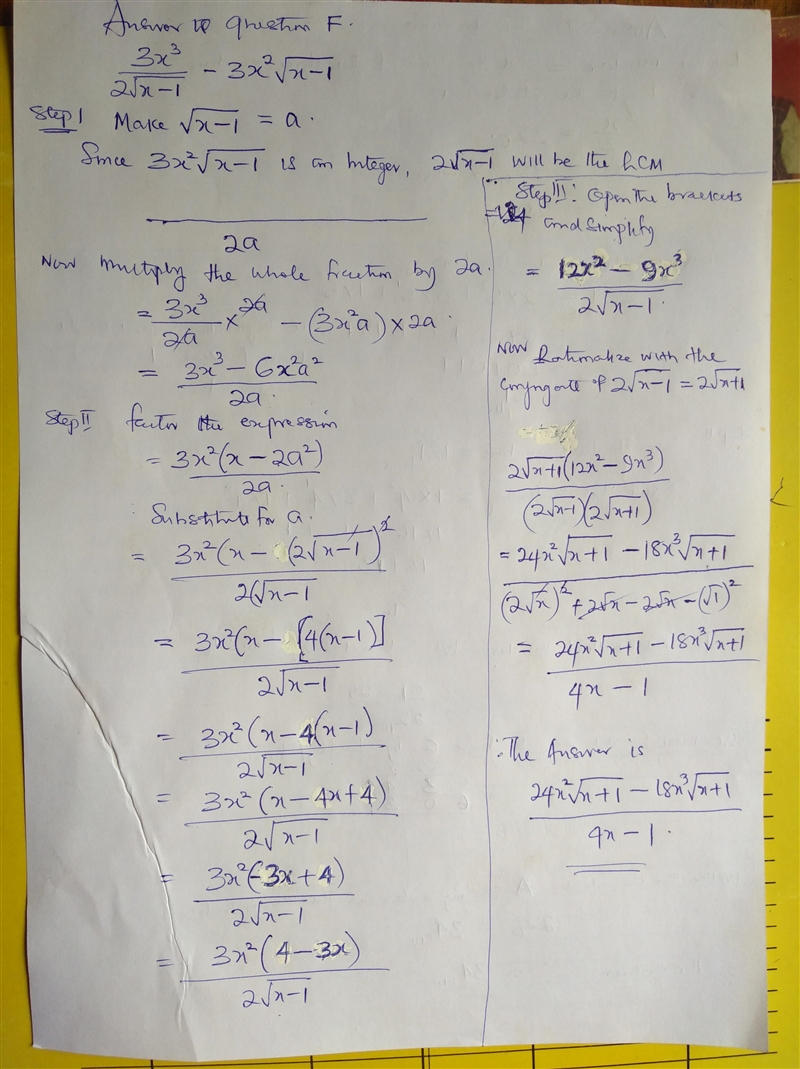 Answer to Question F.
3x³/2√x-1 - 3x²√x-1
Step I Make √x-1 = a.
Since 3x²√x-1 is an Integer, 2√x-1 will be the LCM
2a
Now Multiply the whole fraction by 2a.
= 3x³/2a × 2a - (3x²a) × 2a
= 3x³ - 6x²a²/2a.
Step II factor the expression
= 3x²(x - 2a²)/2a.
Substitute for a.
= 3x²(x - (2√x-1)²/2(√x-1
= 3x²(x - [4(x-1)]/2√x-1
= 3x²(x - 4(x-1)/2√x-1
= 3x²(x - 4x + 4)/2√x-1
= 3x²(-3x + 4)/2√x-1
= 3x²(4 - 3x)/2√x-1
Step III: Open the brackets
and simplify
= 12x² - 9x³/2√x-1.
Now Rationalize with the
Conjugate of 2√x-1 = 2√x+1
2√x+1(12x² - 9x³)/(2√x-1)(2√x+1)
= 24x²√x+1 - 18x³√x+1/(2√x)² + 2√x - 2√x - (√1)²
= 24x²√x+1 - 18x³√x+1/4x - 1
∴ The Answer is
24x²√x+1 - 18x³√x+1/4x - 1.